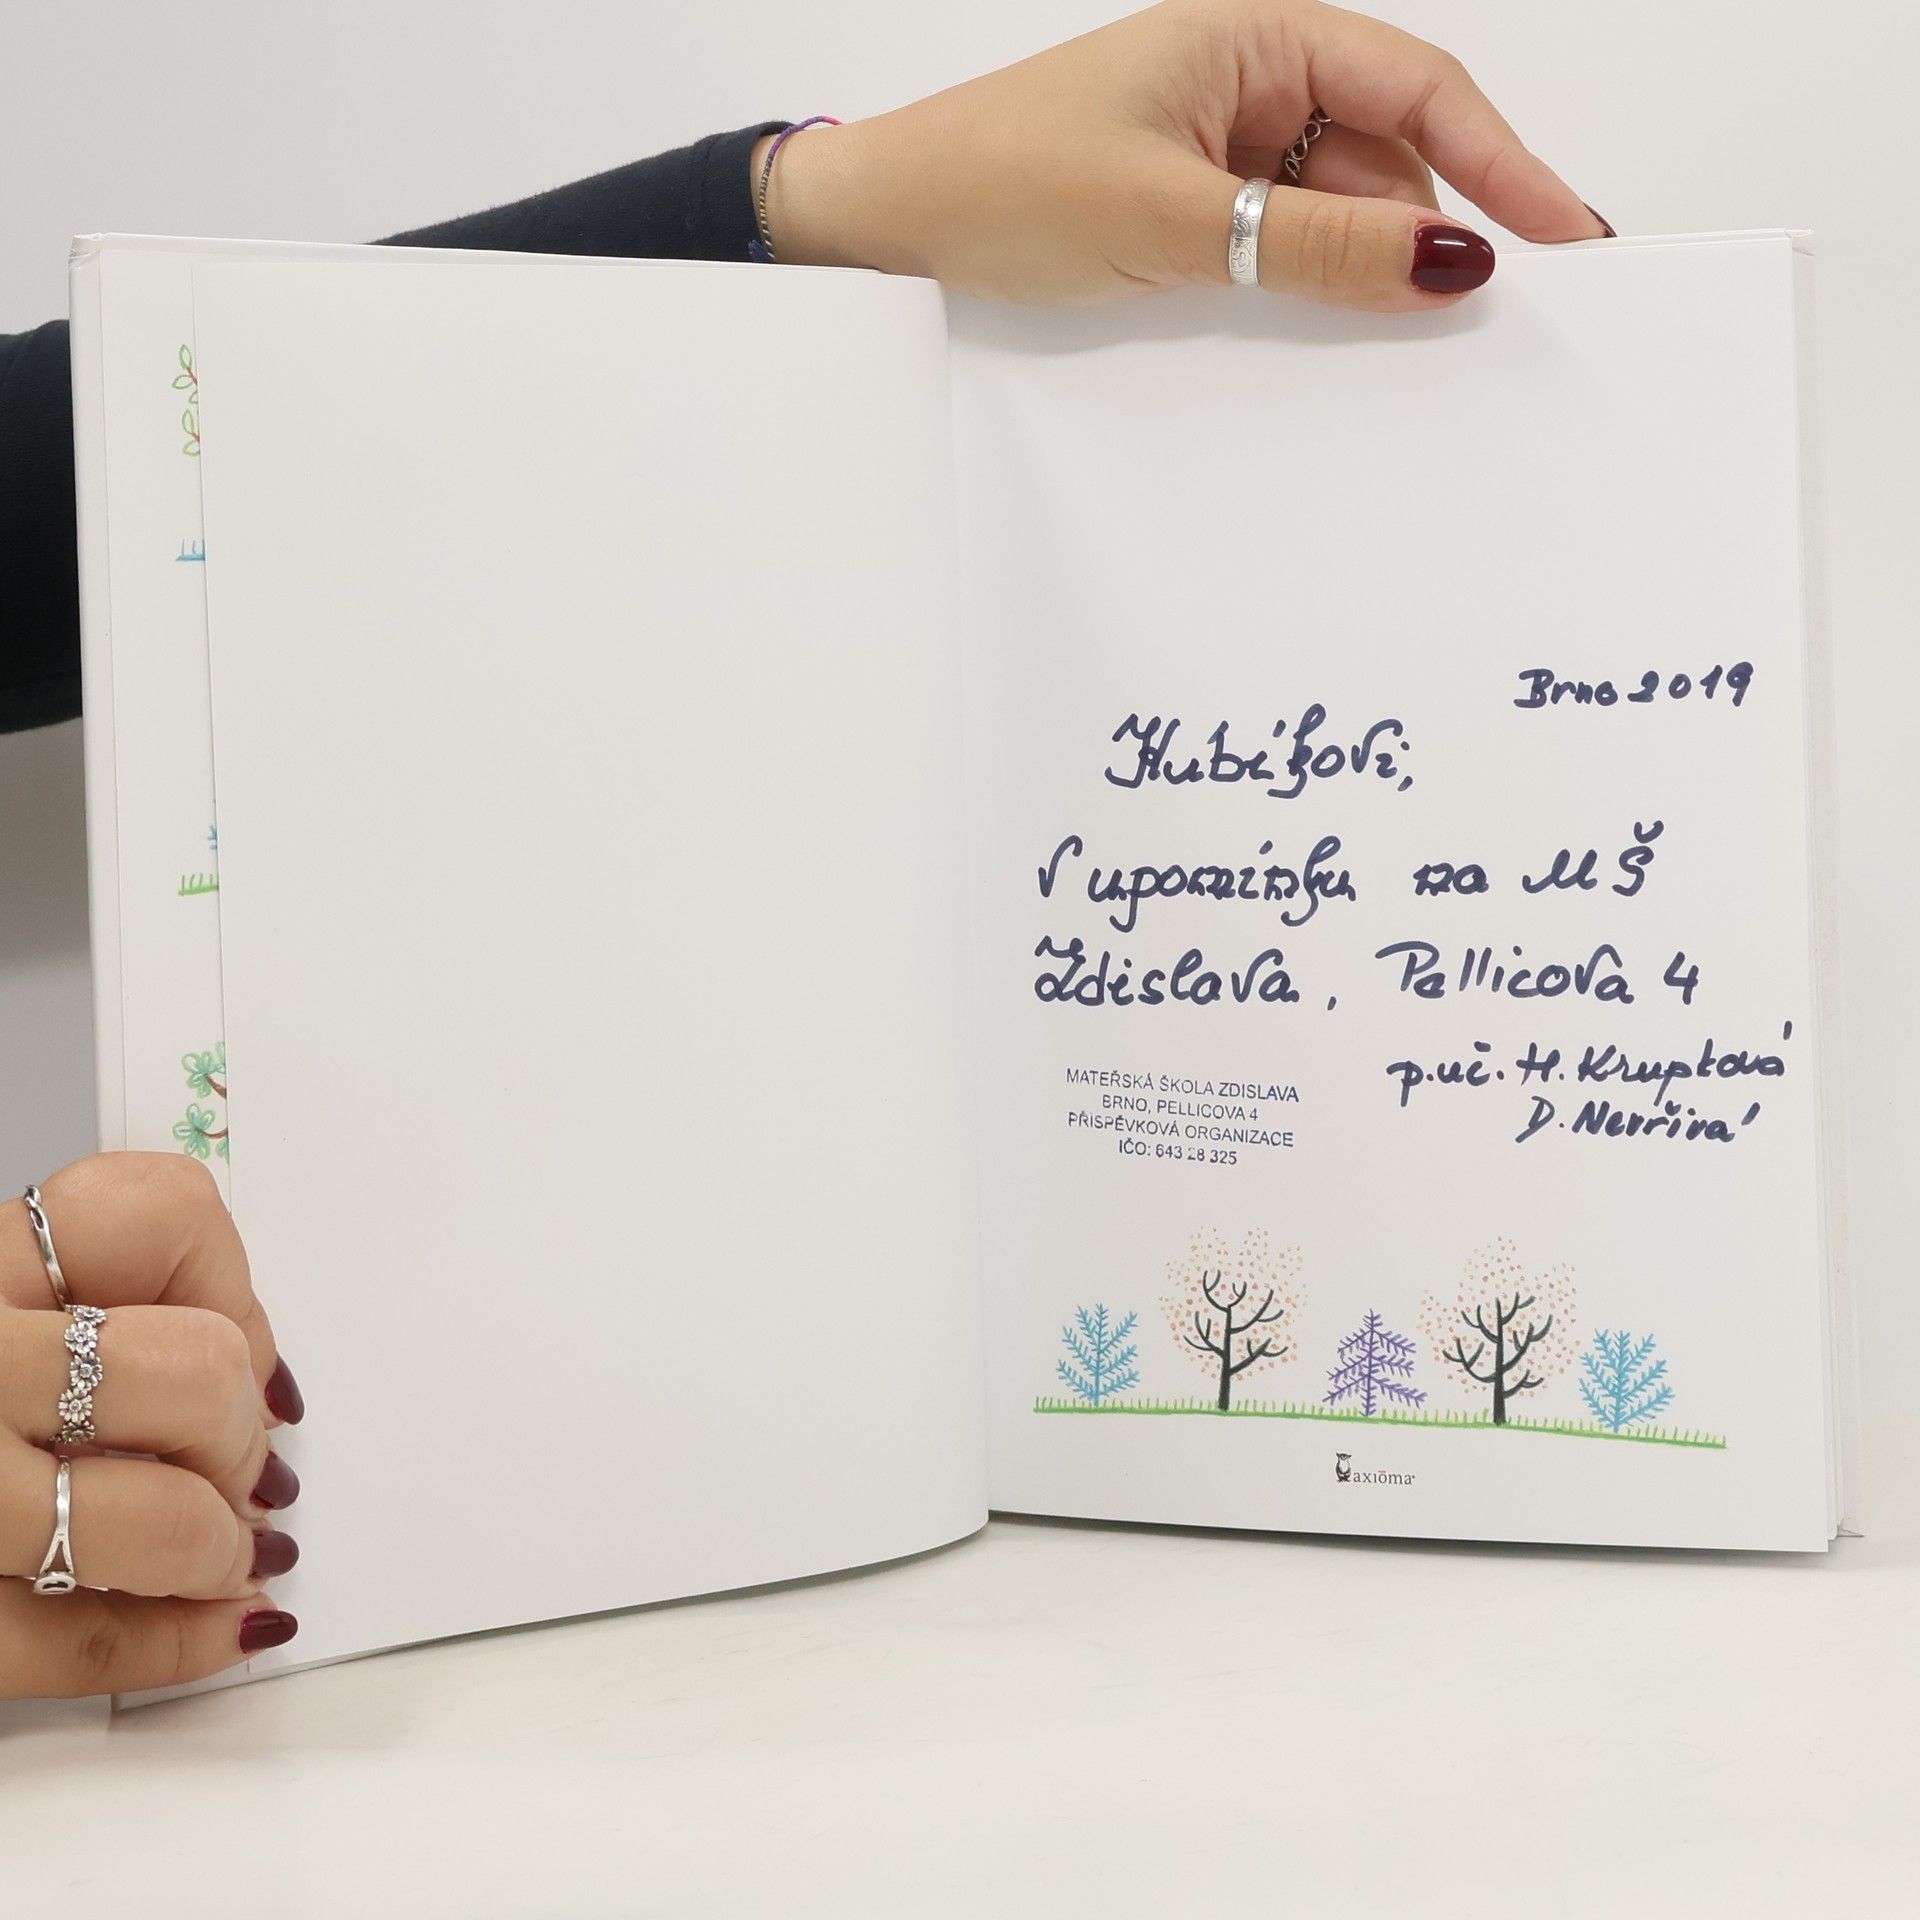 Brno 2019
Kubíkovi,
V upomínku na MŠ
Zdislava, Pellicova 4
p.uč. H. Kruptová
D. Nevřivá
MATEŘSKÁ ŠKOLA ZDISLAVA
BRNO, PELLICOVA 4
PŘÍSPĚVKOVÁ ORGANIZACE
IČO: 643 28 325
axiōma